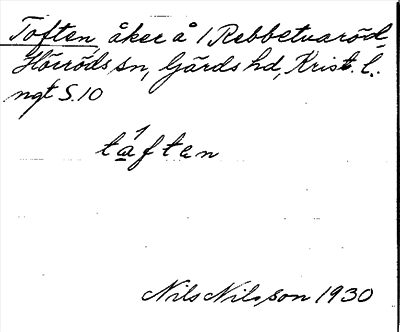 Toften åker å 1 Rebbetuaröd,
Hörröds sn, Gärds hd, Krist. l.
ngt S.10
táften
Nils Nilsson 1930